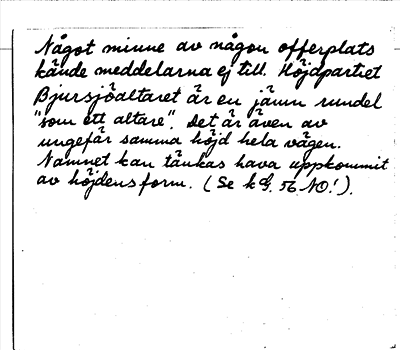 Något minne av någon offerplats
kände meddelarna ej till. Höjdpartiet
Bjursjöaltaret är en jämn rundel
"som ett altare". Det är även av
ungefär samma höjd hela vägen.
Namnet kan tänkas hava uppkommit
av höjdens form. (Se kbl. 56 NO!).